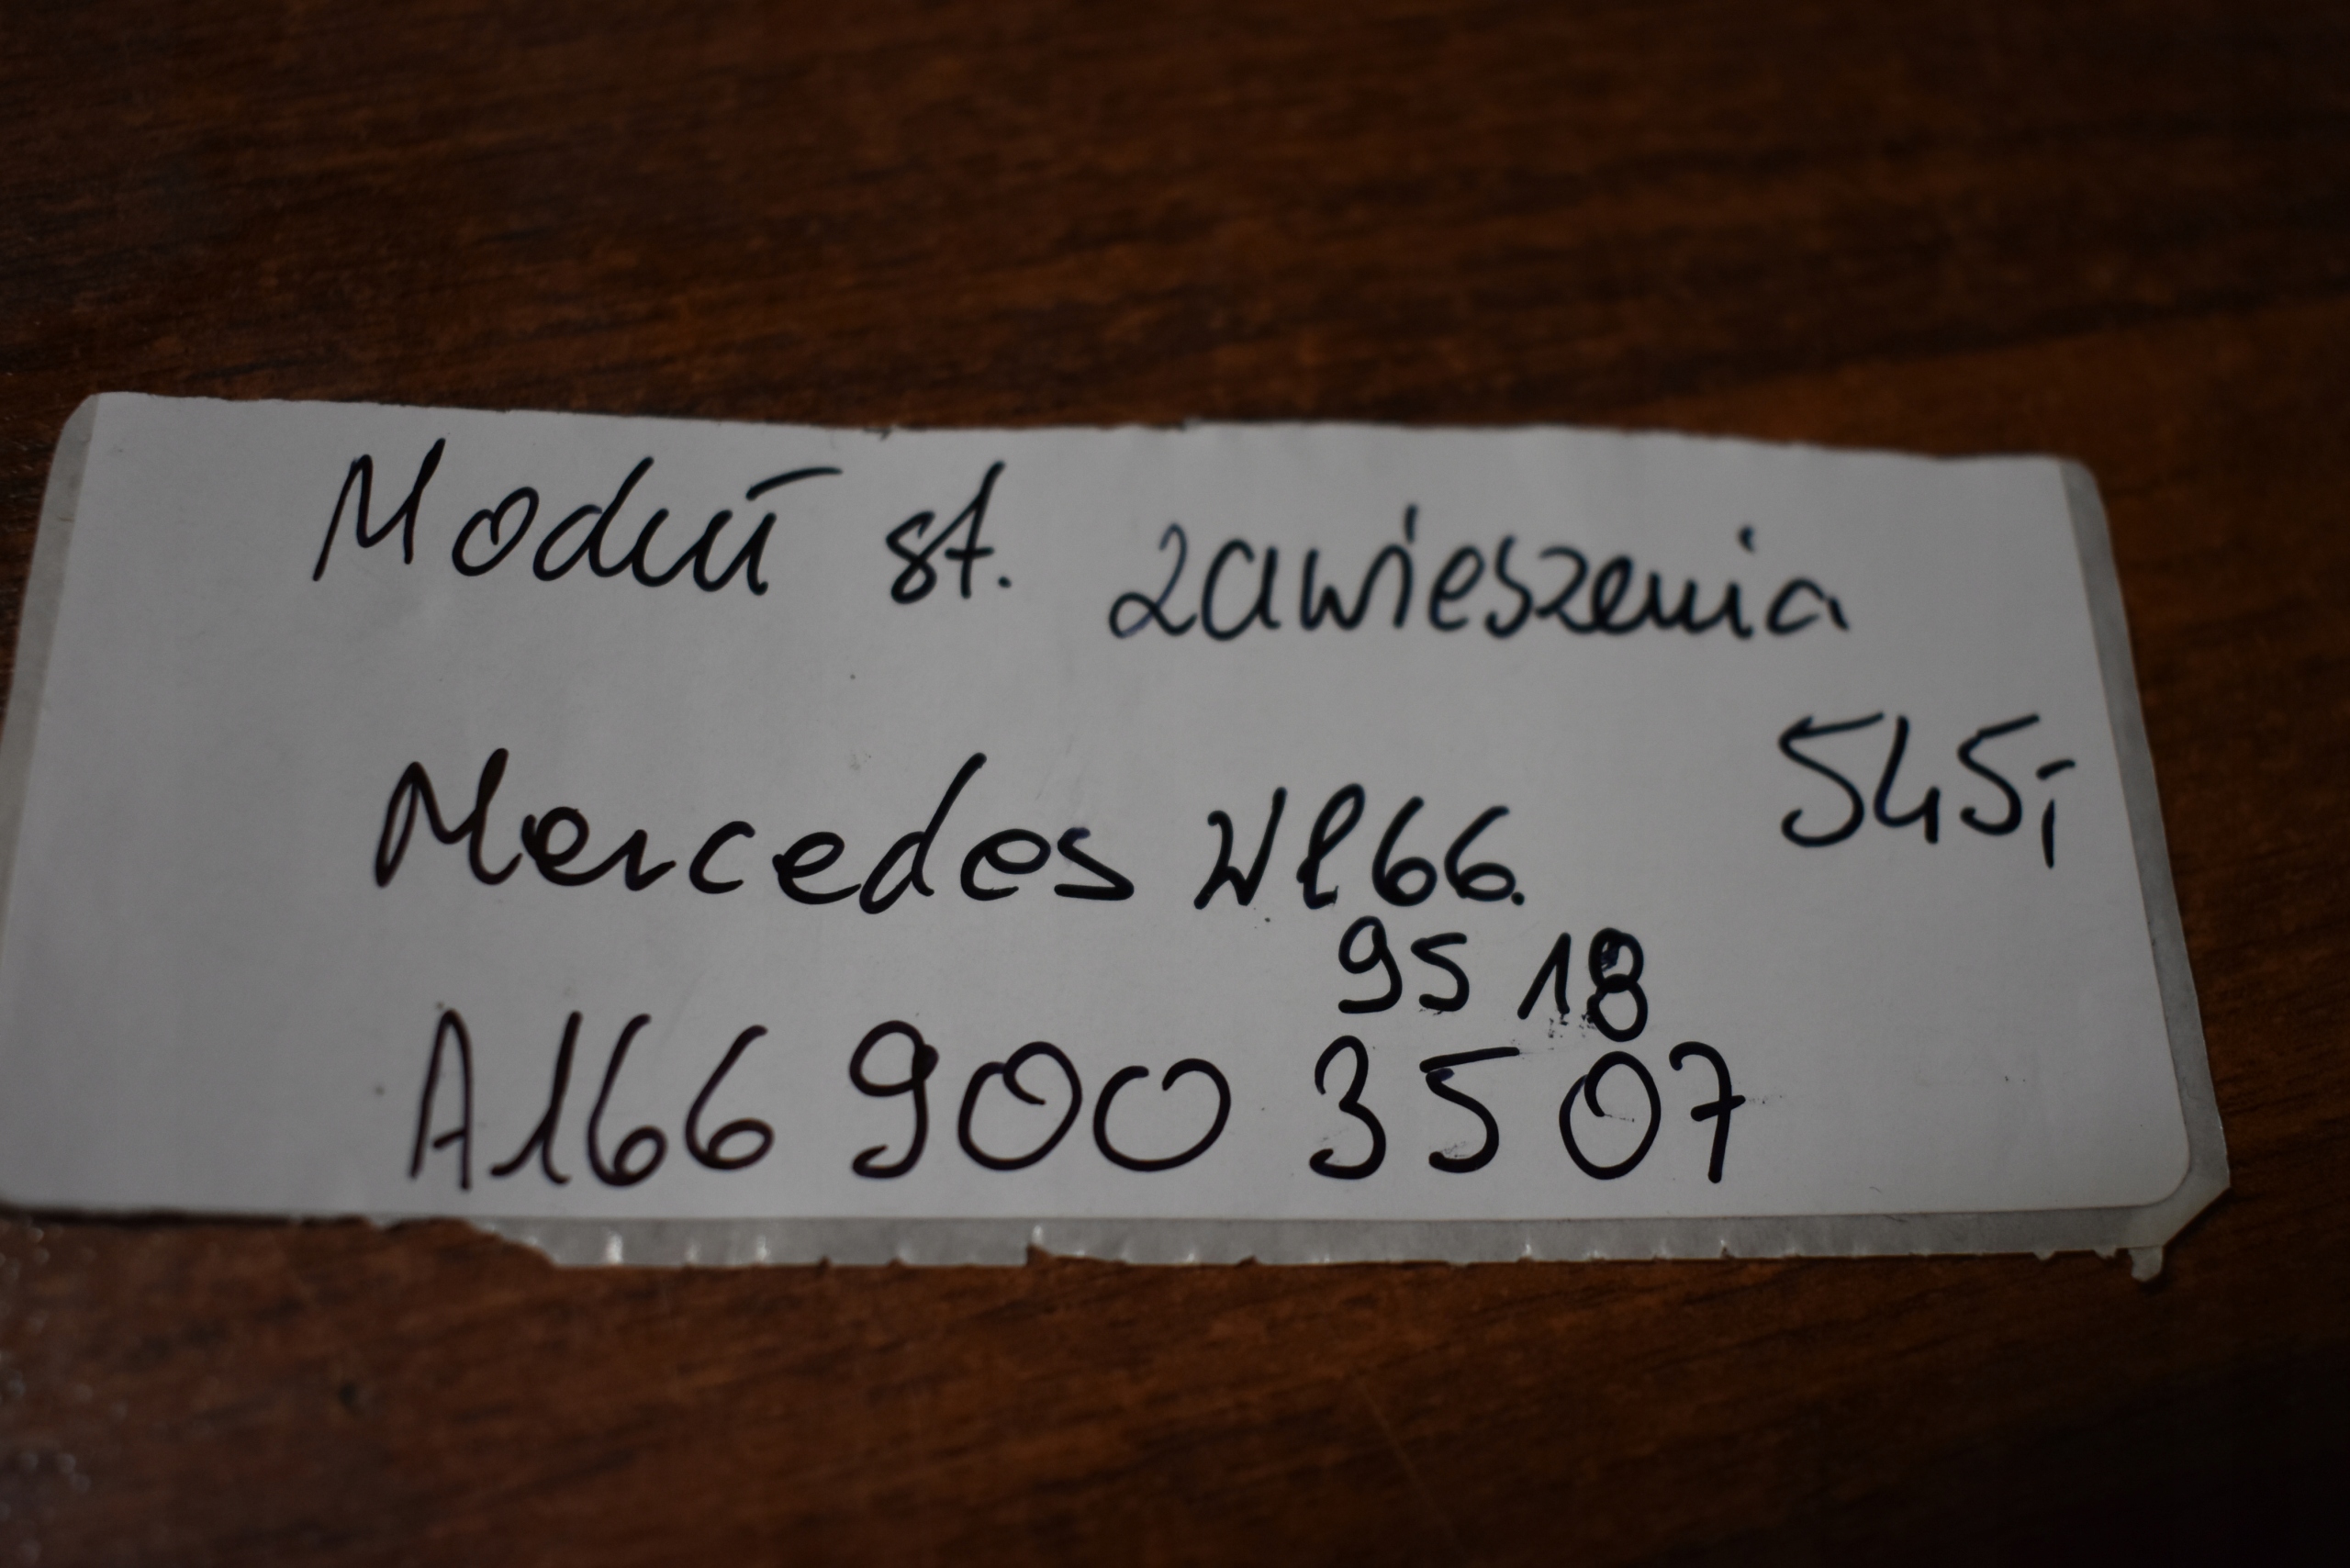 Moduł st. zawieszenia
545,-
Mercedes W166.
95 18
A166 900 35 07